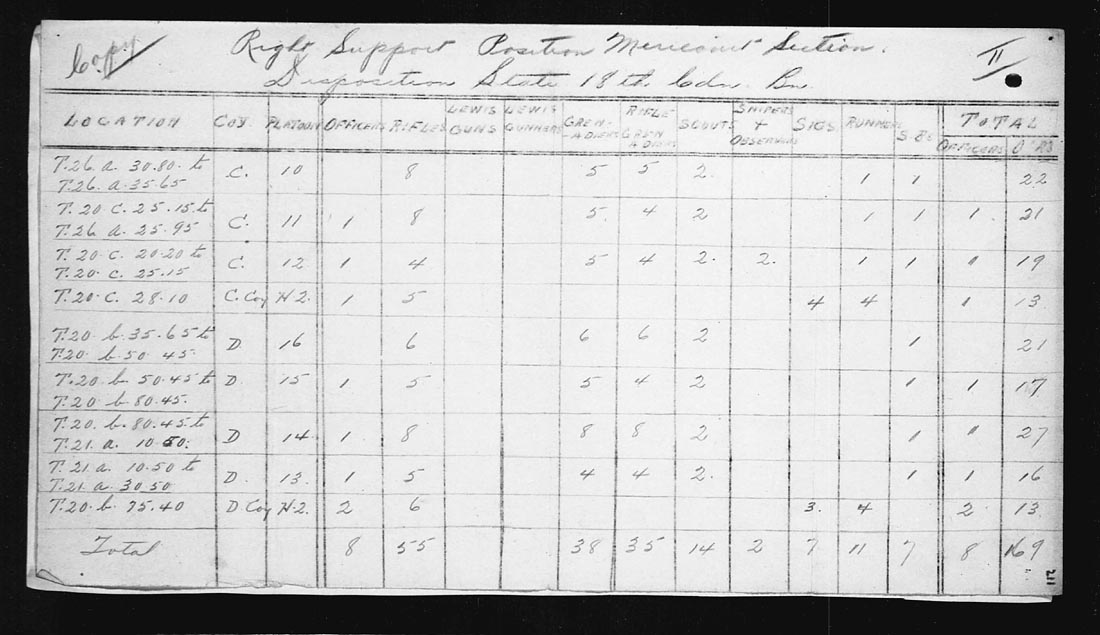 Copy
Right Support Position Mericourt Section.
Disposition State 18th Cdn. Bn.
II
LOCATION COY. PLATOON OFFICERS RIFLES LEWIS GUNS LEWIS GUNNERS GREN-ADIERS RIFLE GREN ADIERS SCOUTS SNIPERS + OBSERVERS SIGS RUNNERS S BS TOTAL OFFICERS O'RS
T.26. a. 30.80. to
T.26. a. 35.65 C. 10 8 5 5 2. 1 1 22
T. 20 C. 25.15 to
T.26 a. 25.95 C. 11 1 8 5. 4 2 1 1 1. 21
T. 20 C. 20.20 to
T.20. C. 25.15 C. 12 1 4 5 4 2. 2. 1 1 " 19
T.20.C. 28.10 C. Coy H.2. 1 5 4 4 1 13
T.20 b. 35.65 to
T.20 b. 50 45. D 16 6 6 6 2 1 21
T.20 b. 50.45 to
T.20 b. 80.45. D. 15 1 5 5 4 2 1 1 17
T.20. b. 80.45 to
T.21. a. 10 50. D 14. 1. 8 8 8 2 1 " 27
T. 21 a. 10.50 to
T.21 a. 30.50 D. 13. 1 5 4 4 2. 1 1 16
T.20. b. 75.40 D Coy H.2. 2 6 3. 4 2. 13.
Total 8 55 38 35 14 2 7 11 7 8 169